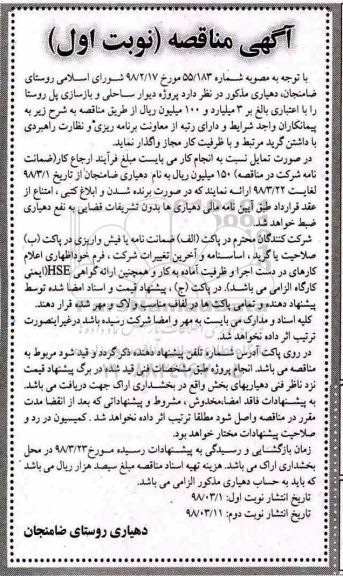 آگهی مناقصه (نوبت اول)
با توجه به مصوبه شماره ۵۵/۱۸۳ مورخ ۹۸/۲/۱۷ شورای اسلامی روستای
ضامنجان، دهیاری مذکور در نظر دارد پروژه دیوار ساحلی و بازسازی پل روستا
را با اعتباری بالغ بر ۳ میلیارد و ۱۰۰ میلیون ریال از طریق مناقصه به شرح زیر به
پیمانکاران واجد شرایط و دارای رتبه از معاونت برنامه ریزی و نظارت راهبردی
با داشتن گرید مرتبط و با ظرفیت کار مجاز واگذار نماید.
در صورت تمایل نسبت به انجام کار می بایست مبلغ فرآیند ارجاع کار(ضمانت
نامه شرکت در مناقصه) ۱۵۰ میلیون ریال به نام دهیاری ضامنجان از تاریخ ۹۸/۳/۱
لغایت ۹۸/۳/۲۲ ارائه نمایند که در صورت برنده شدن و ابلاغ کتبی ، امتناع از
عقد قرارداد طبق آیین نامه مالی دهیاری ها بدون تشریفات قضایی به نفع دهیاری
ضبط خواهد شد.
شرکت کنندگان محترم در پاکت (الف) ضمانت نامه یا فیش واریزی در پاکت (ب)
صلاحیت یا گرید ، اساسنامه و آخرین تغییرات شرکت ، فرم خوداظهاری اعلام
کارهای در دست اجرا و ظرفیت آماده به کار و همچنین ارائه گواهی HSE(ایمنی
کارگاه الزامی می باشد). در پاکت (ج) ، پیشنهاد قیمت و اسناد امضا شده توسط
پیشنهاد دهنده و تمامی پاکت ها در لفاف مناسب و لاک و مهر شده قرار دهند.
کلیه اسناد و مدارک می بایست به مهر و امضا شرکت رسیده باشد درغیراینصورت
ترتیب اثر داده نخواهد شد.
در روی پاکت آدرس شماره تلفن پیشنهاد دهنده ذکر گردد و قید شود مربوط به
مناقصه می باشد. انجام پروژه طبق مشخصات فنی قید شده در برگ پیشنهاد قیمت
نزد ناظر فنی دهیاریهای بخش واقع در بخشداری اراک جهت دریافت می باشد.
به پیشنهادات فاقد امضا،مخدوش ، مشروط و پیشنهاداتی که بعد از انقضا مدت
مقرر در مناقصه واصل شود مطلقا ترتیب اثر داده نخواهد شد . کمیسیون در رد و
صلاحیت پیشنهادات مختار خواهد بود.
زمان بازگشایی و رسیدگی به پیشنهادات رسیده مورخ۹۸/۳/۲۳ در محل
بخشداری اراک می باشد. هزینه تهیه اسناد مناقصه مبلغ سیصد هزار ریال می باشد
که باید به حساب دهیاری مذکور الزامی می باشد.
تاریخ انتشار نوبت اول: ۹۸/۰۳/۱
تاریخ انتشار نوبت دوم: ۹۸/۰۳/۱۱
دهیاری روستای ضامنجان